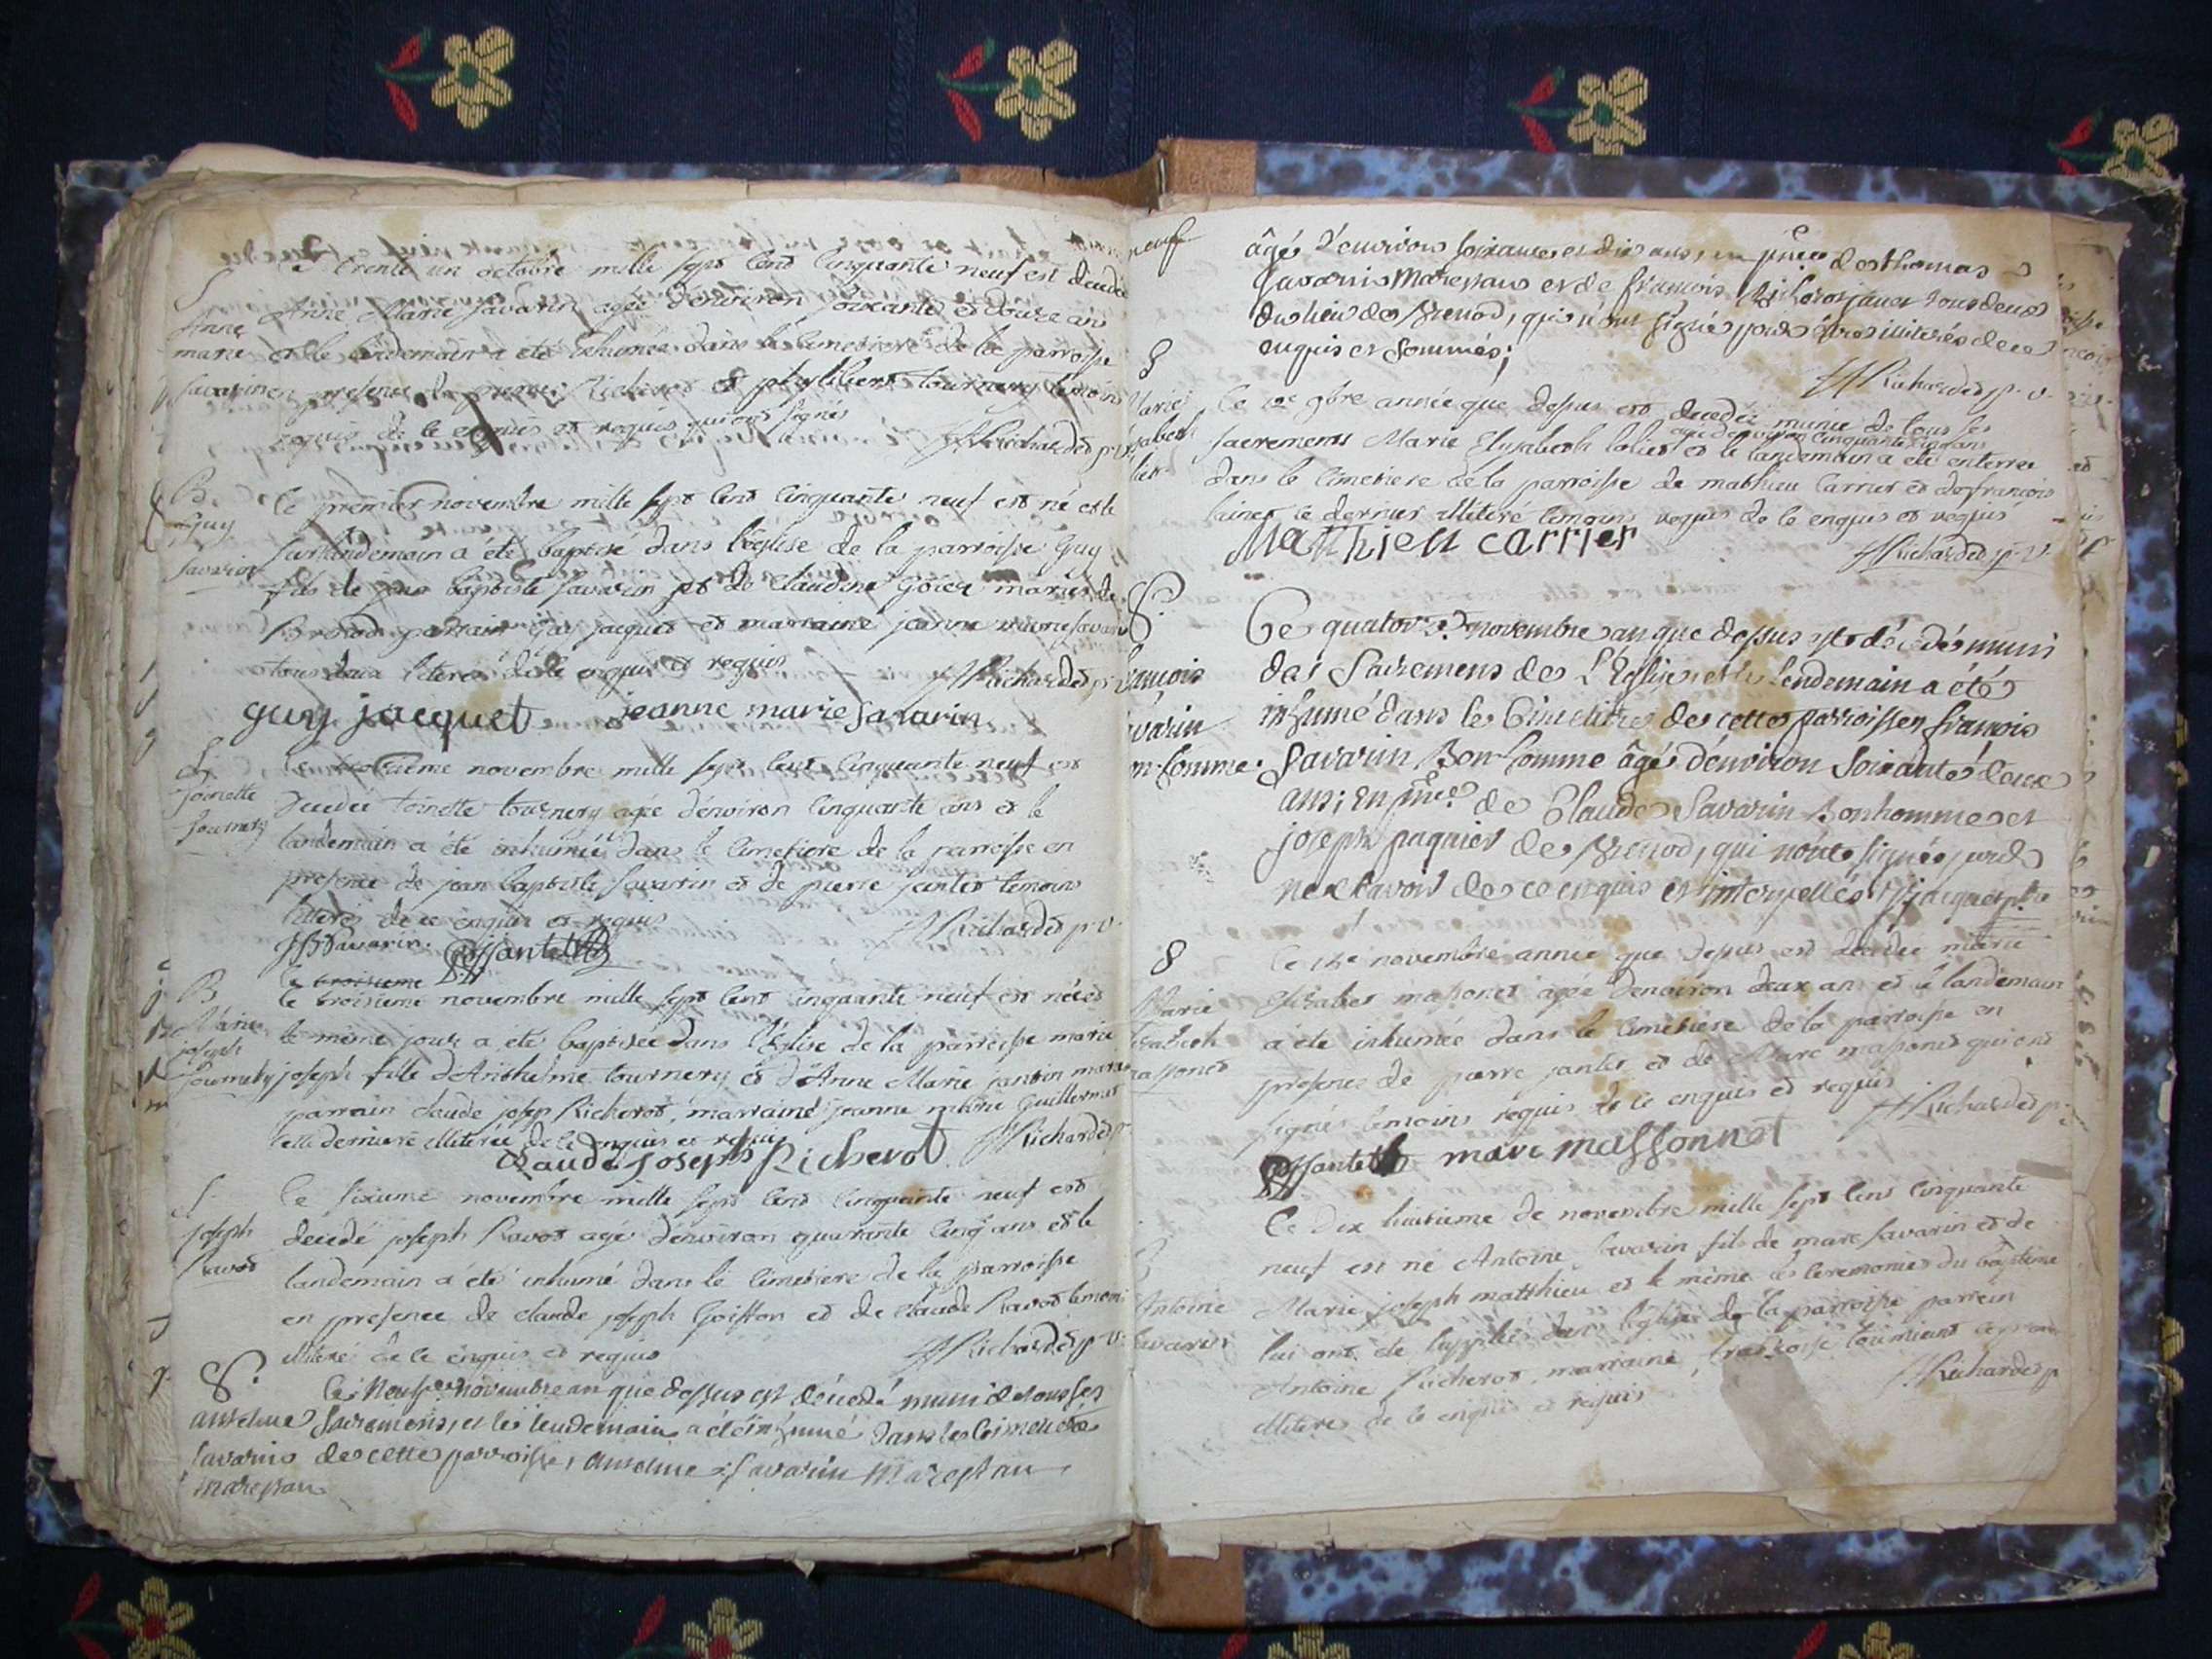 S
Anne
marie
Savarin
Le trente un octobre mille sept cent cinquante neuf est decedée
Anne Marie Savarin agée d'environ soixante et douze ans
et le landemain a été inhumée dans le cimetiere de la parroisse
en presence de pierre Richerot et phylibert tournery temoins
requis de ce enquis et requis qui ont signés
JJRichard p. v.
B
Guy
Savarin
Le premier novembre mille sept cent cinquante neuf est né et le
surlandemain a été baptisé dans l'église de la parroisse Guy
fils de jean baptiste Savarin et de Claudine Goiet mariés de
Brenod parrain Guy jacquet et marraine jeanne marie Savarin
tous deux literés de ce enquis et requis
JJRichard p. v.
guy jacquet jeanne marie Savarin
S
Toinette
Tournery
Le troisieme novembre mille sept cent cinquante neuf est
decedée toinette tournery agée d'environ cinquante ans et le
landemain a été inhumée dans le cimetiere de la parroisse en
presence de jean baptiste Savarin et de pierre jantet temoins
literés de ce enquis et requis
JJRichard p. v.
JBSavarin. PJantet
Le troisieme
B
Marie
joseph
Tournery
le troisieme novembre mille sept cent cinquante neuf est née et
le même jour a été baptisée dans l'Eglise de la parroisse marie
joseph fille d'Anthelme tournery et d'Anne Marie jantin mariés
parrain claude josep Richerot, marraine jeanne marie Guillermet
cette derniere illiterée de ce enquis et requis
JJRichard p.
Claude Joseph Richerot
S.
joseph
Ravot
Le sixieme novembre mille sept cent cinquante neuf est
decedé joseph Ravot agé d'environ quarante cinq ans et le
landemain a été inhumé dans le cimetiere de la parroisse
en presence de claude joseph Goiffon et de claude Ravot temoins
illiterés de ce enquis et requis
JJRichard p. v.
S.
anthelme
Savarin
marepan
Le neuf novembre an que dessus est décedé muni de tous ses
Sacremens, et le lendemain a été inhumé dans le cimetiere
de cette parroisse, anselme Savarin Marepau
neuf
âgé d'environ soixante et dix ans, en pnce de thomas
Savarin Marepau et de françois Richerot jacet tous deux
du lieu de Brenod, qui n'ont signés pour être illiterés de ce
enquis et sommés;
JJRichard p. v.
S
Le 12e 9bre année que dessus est decedée munie de tous ses
sacrements Marie Elysabeth Colliet
agée d'environ cinquante six ans
et le landemain a été enterrée
dans le cimetiere de la parroisse de mathieu Carrier et de françois
ce dernier illiteré temoins requis de ce enquis et requis
Matthieu carrier
JJRichard p. v.
S.
françois
Savarin
Bonhomme.
Ce quatorze novembre an que dessus est décédé muni
des Sacremens de L'Eglise et le lendemain a été
inhumé dans le Cimetiere de cette parroisse françois
Savarin Bonhomme âgé d'environ Soixante deux
ans; En pnce de Claude Savarin Bonhomme et
joseph paquiet de Brenod, qui n'ont signés pour
ne sçavoir de ce enquis et interpellés jacquet ptre
S
Marie
Elisabeth
Massonet
Le 14e novembre année que dessus est decedée marie
Elisabet massonet agée d'environ deux ans et le landemain
a été inhumée dans le cimetiere de la parroisse en
presence de pierre jantet et de Marc massonet qui ont
signés temoins requis de ce enquis et requis
JJRichard p.
PJantet marc massonnet
B
Antoine
Savarin
Le dix huitieme de novembre mille sept cent cinquante
neuf est né Antoine Savarin fils de marc Savarin et de
Marie joseph matthieu et le même les ceremonies du baptême
lui ont été supplées dans l'église de la parroisse parrein
Antoine Richerot, marraine, françoise
illiteres de ce enquis et requis
JJRichard p